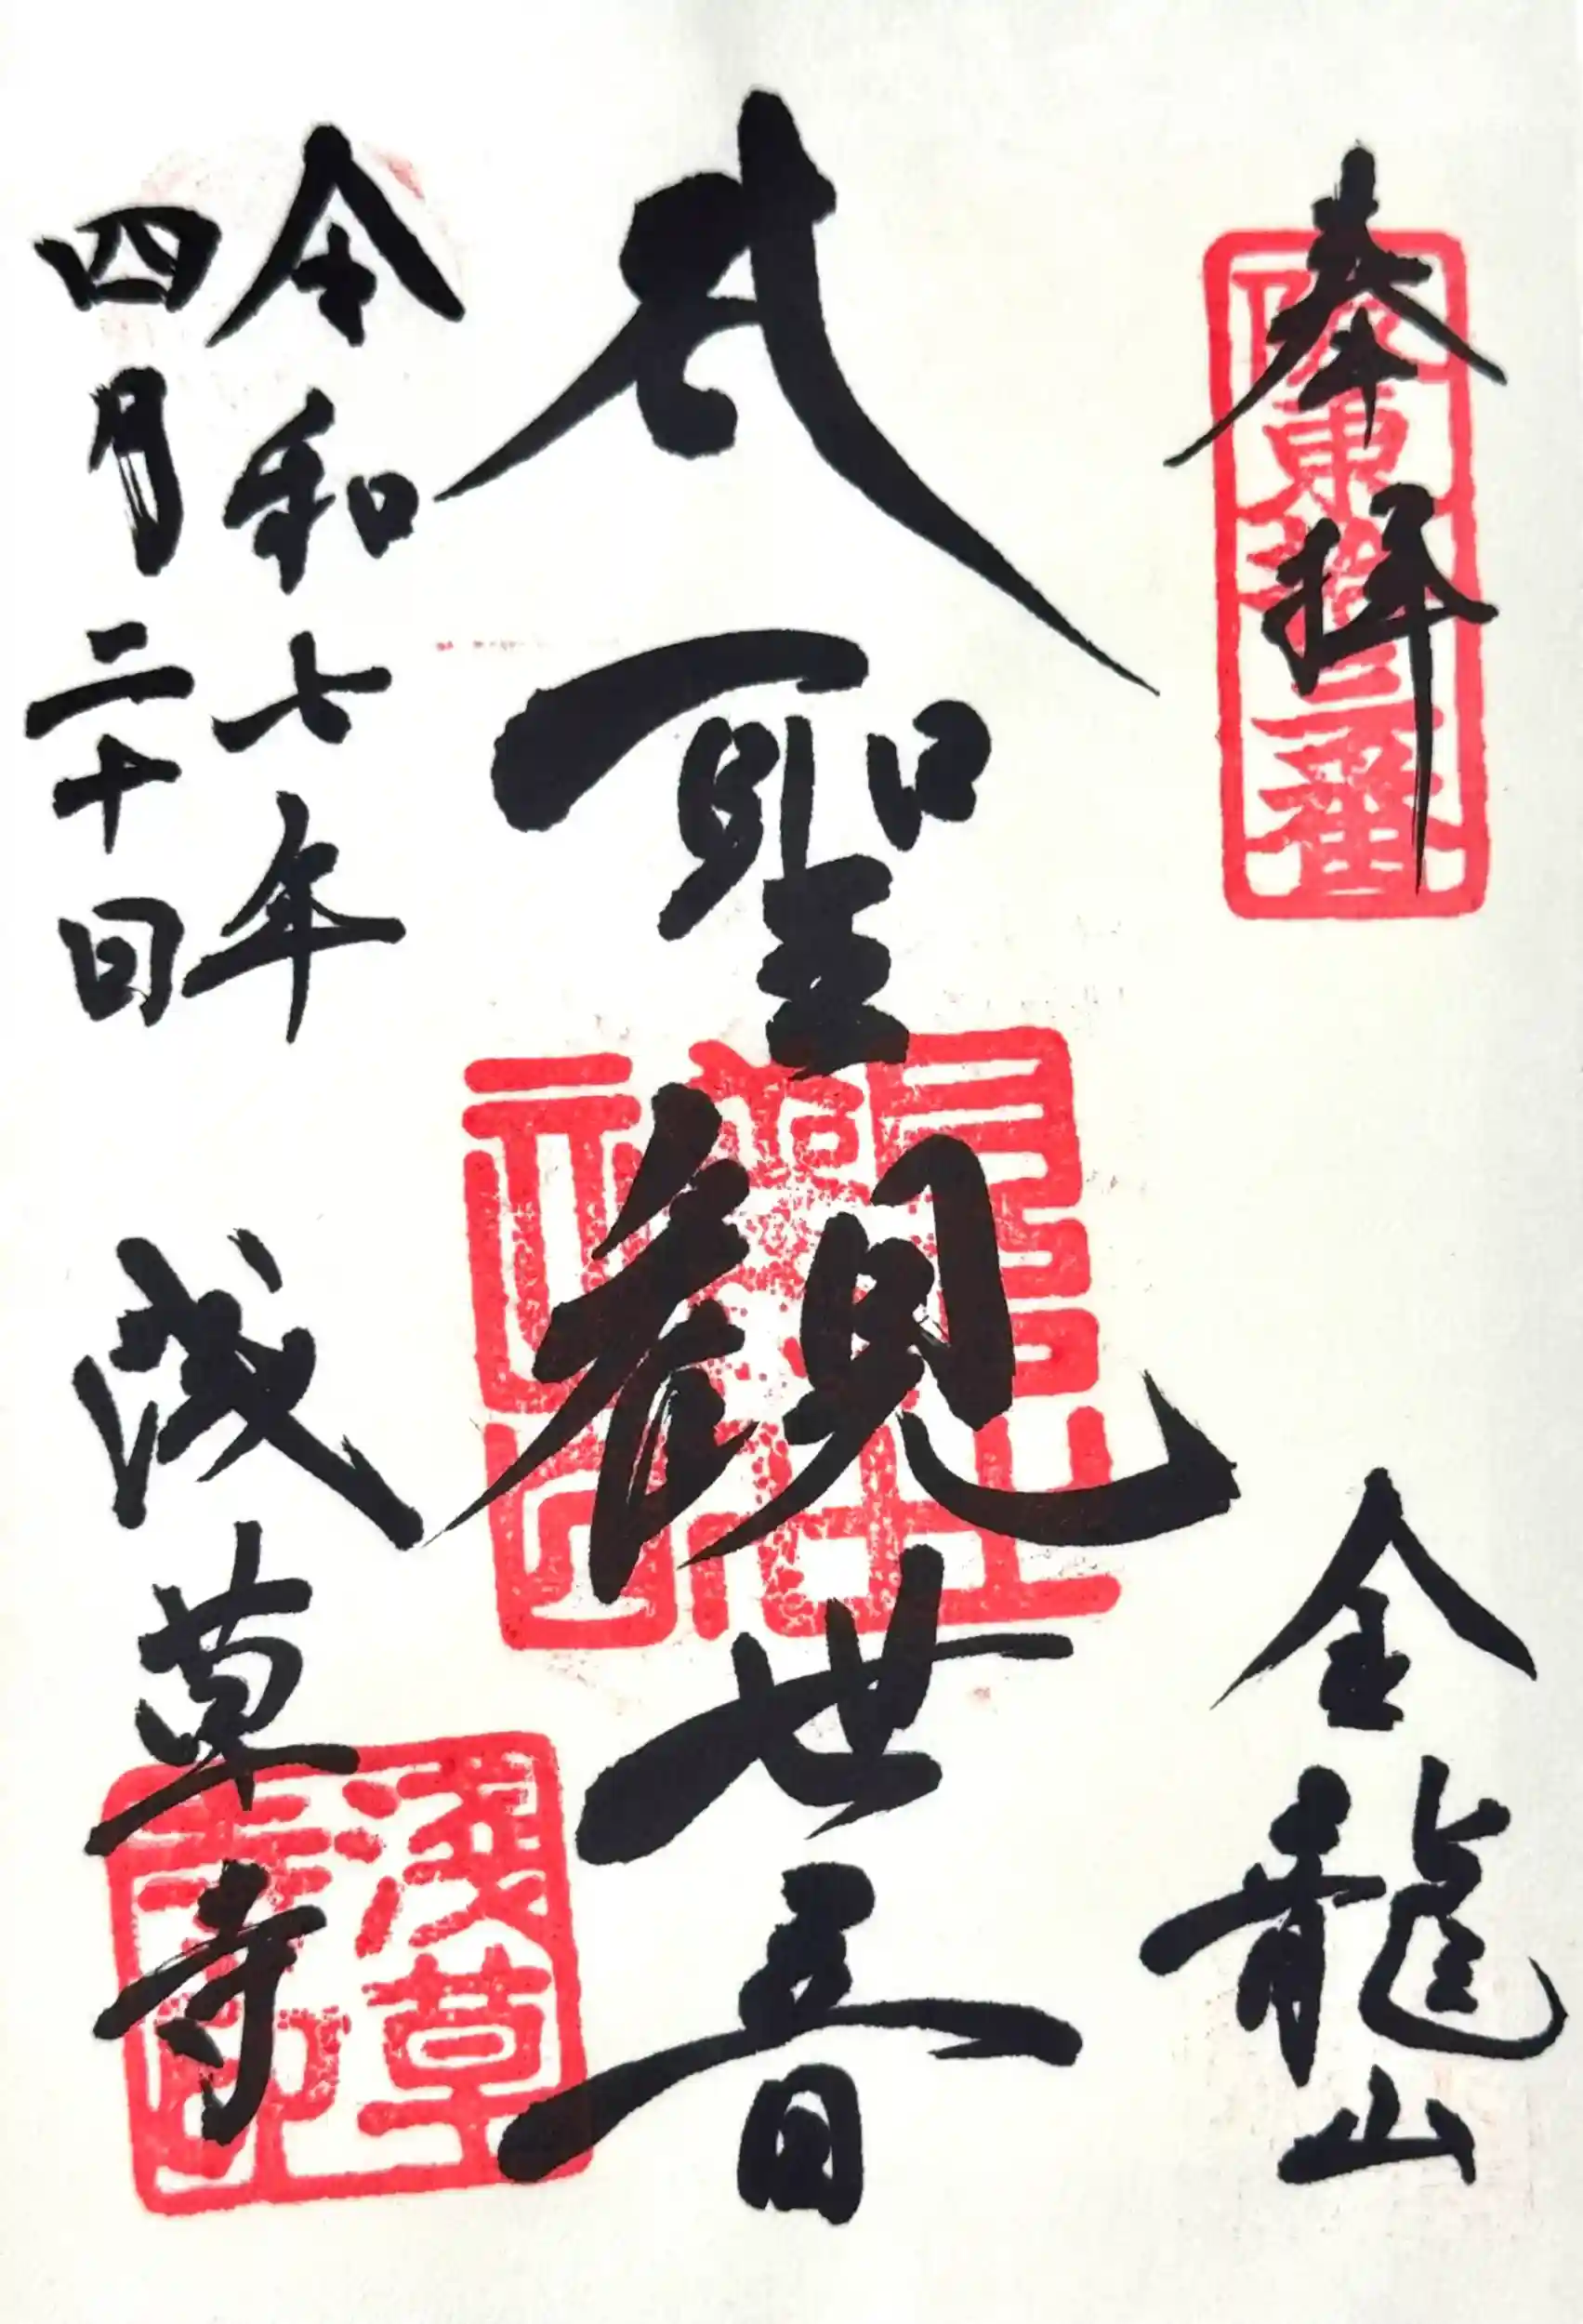 奉拝
坂東拾三番
金龍山
聖観世音
令和七年
四月二十日
浅草寺
淺草寺印